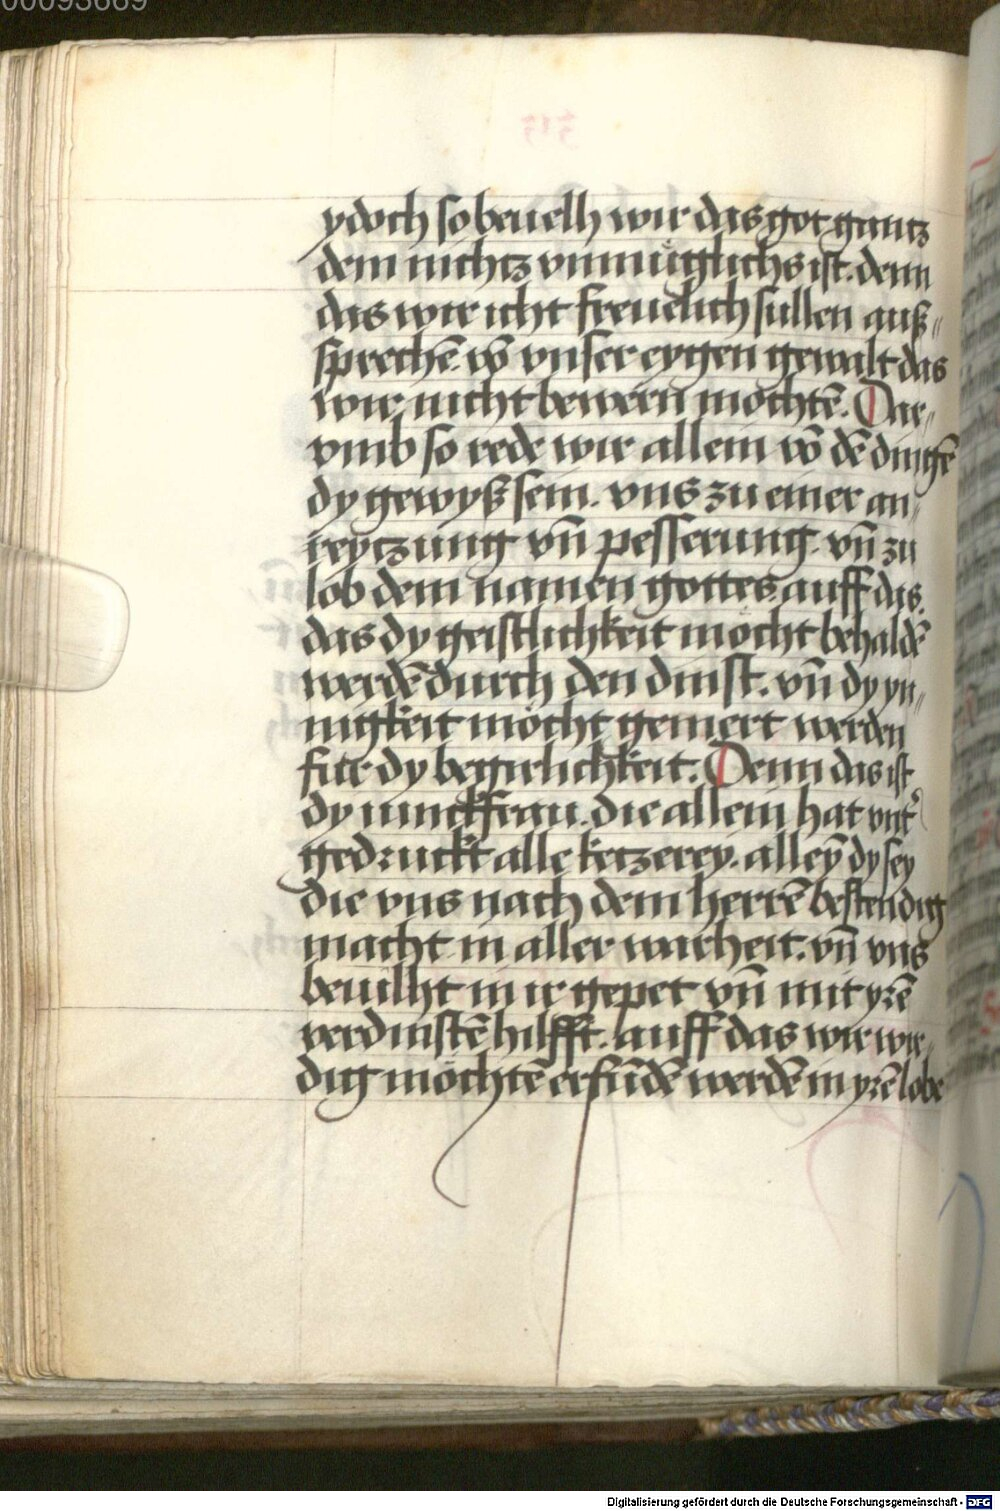 00093669
ydoch so beuelh wir das got gantz
dem nichtz vnmuglichs ist. denn
das wir icht freuelich sullen auß⸗
sprechē. vō vnser eygen gewalt das
wir nicht bewern mochtē. Dar⸗
vmb so rede wir allein vō dē dingē
dy gewyß sein. vns zu einer an⸗
reytzung vn̄ pesserung. vn̄ zu
lob dem namen gottes auff das.
das dy geistlichkeit mocht behaldē
werdē durch den dinst. vn̄ dy yn⸗
nigkeit möcht gemert werden
fur dy begirlichkeit. Denn das ist
dy iunckfrau. die allein hat vnt̾
gedruckt alle ketzerey. alleȳ dy sey
die vns nach dem herrē bestendig
macht in aller warheit. vn̄ vns
beuilht in ir gepet vn̄ mit yrē
verdinstē hilfft. auff das wir wir⸗
dig möchtē erfūdē werdē in yrē lobe
Digitalisierung gefördert durch die Deutsche Forschungsgemeinschaft - DFG